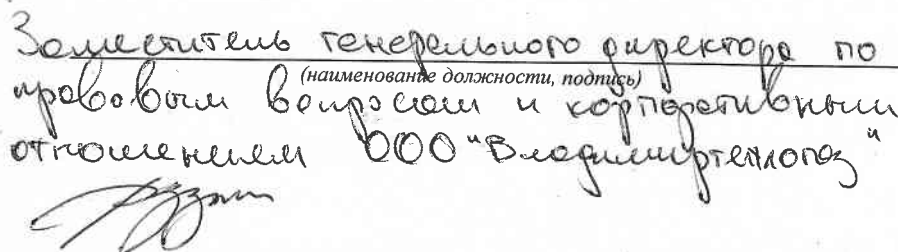 Заместитель генерального директора по
(наименование должности, подпись)
правовым вопросам и корпоративным
отношениям ООО "Владимиртеплогаз"